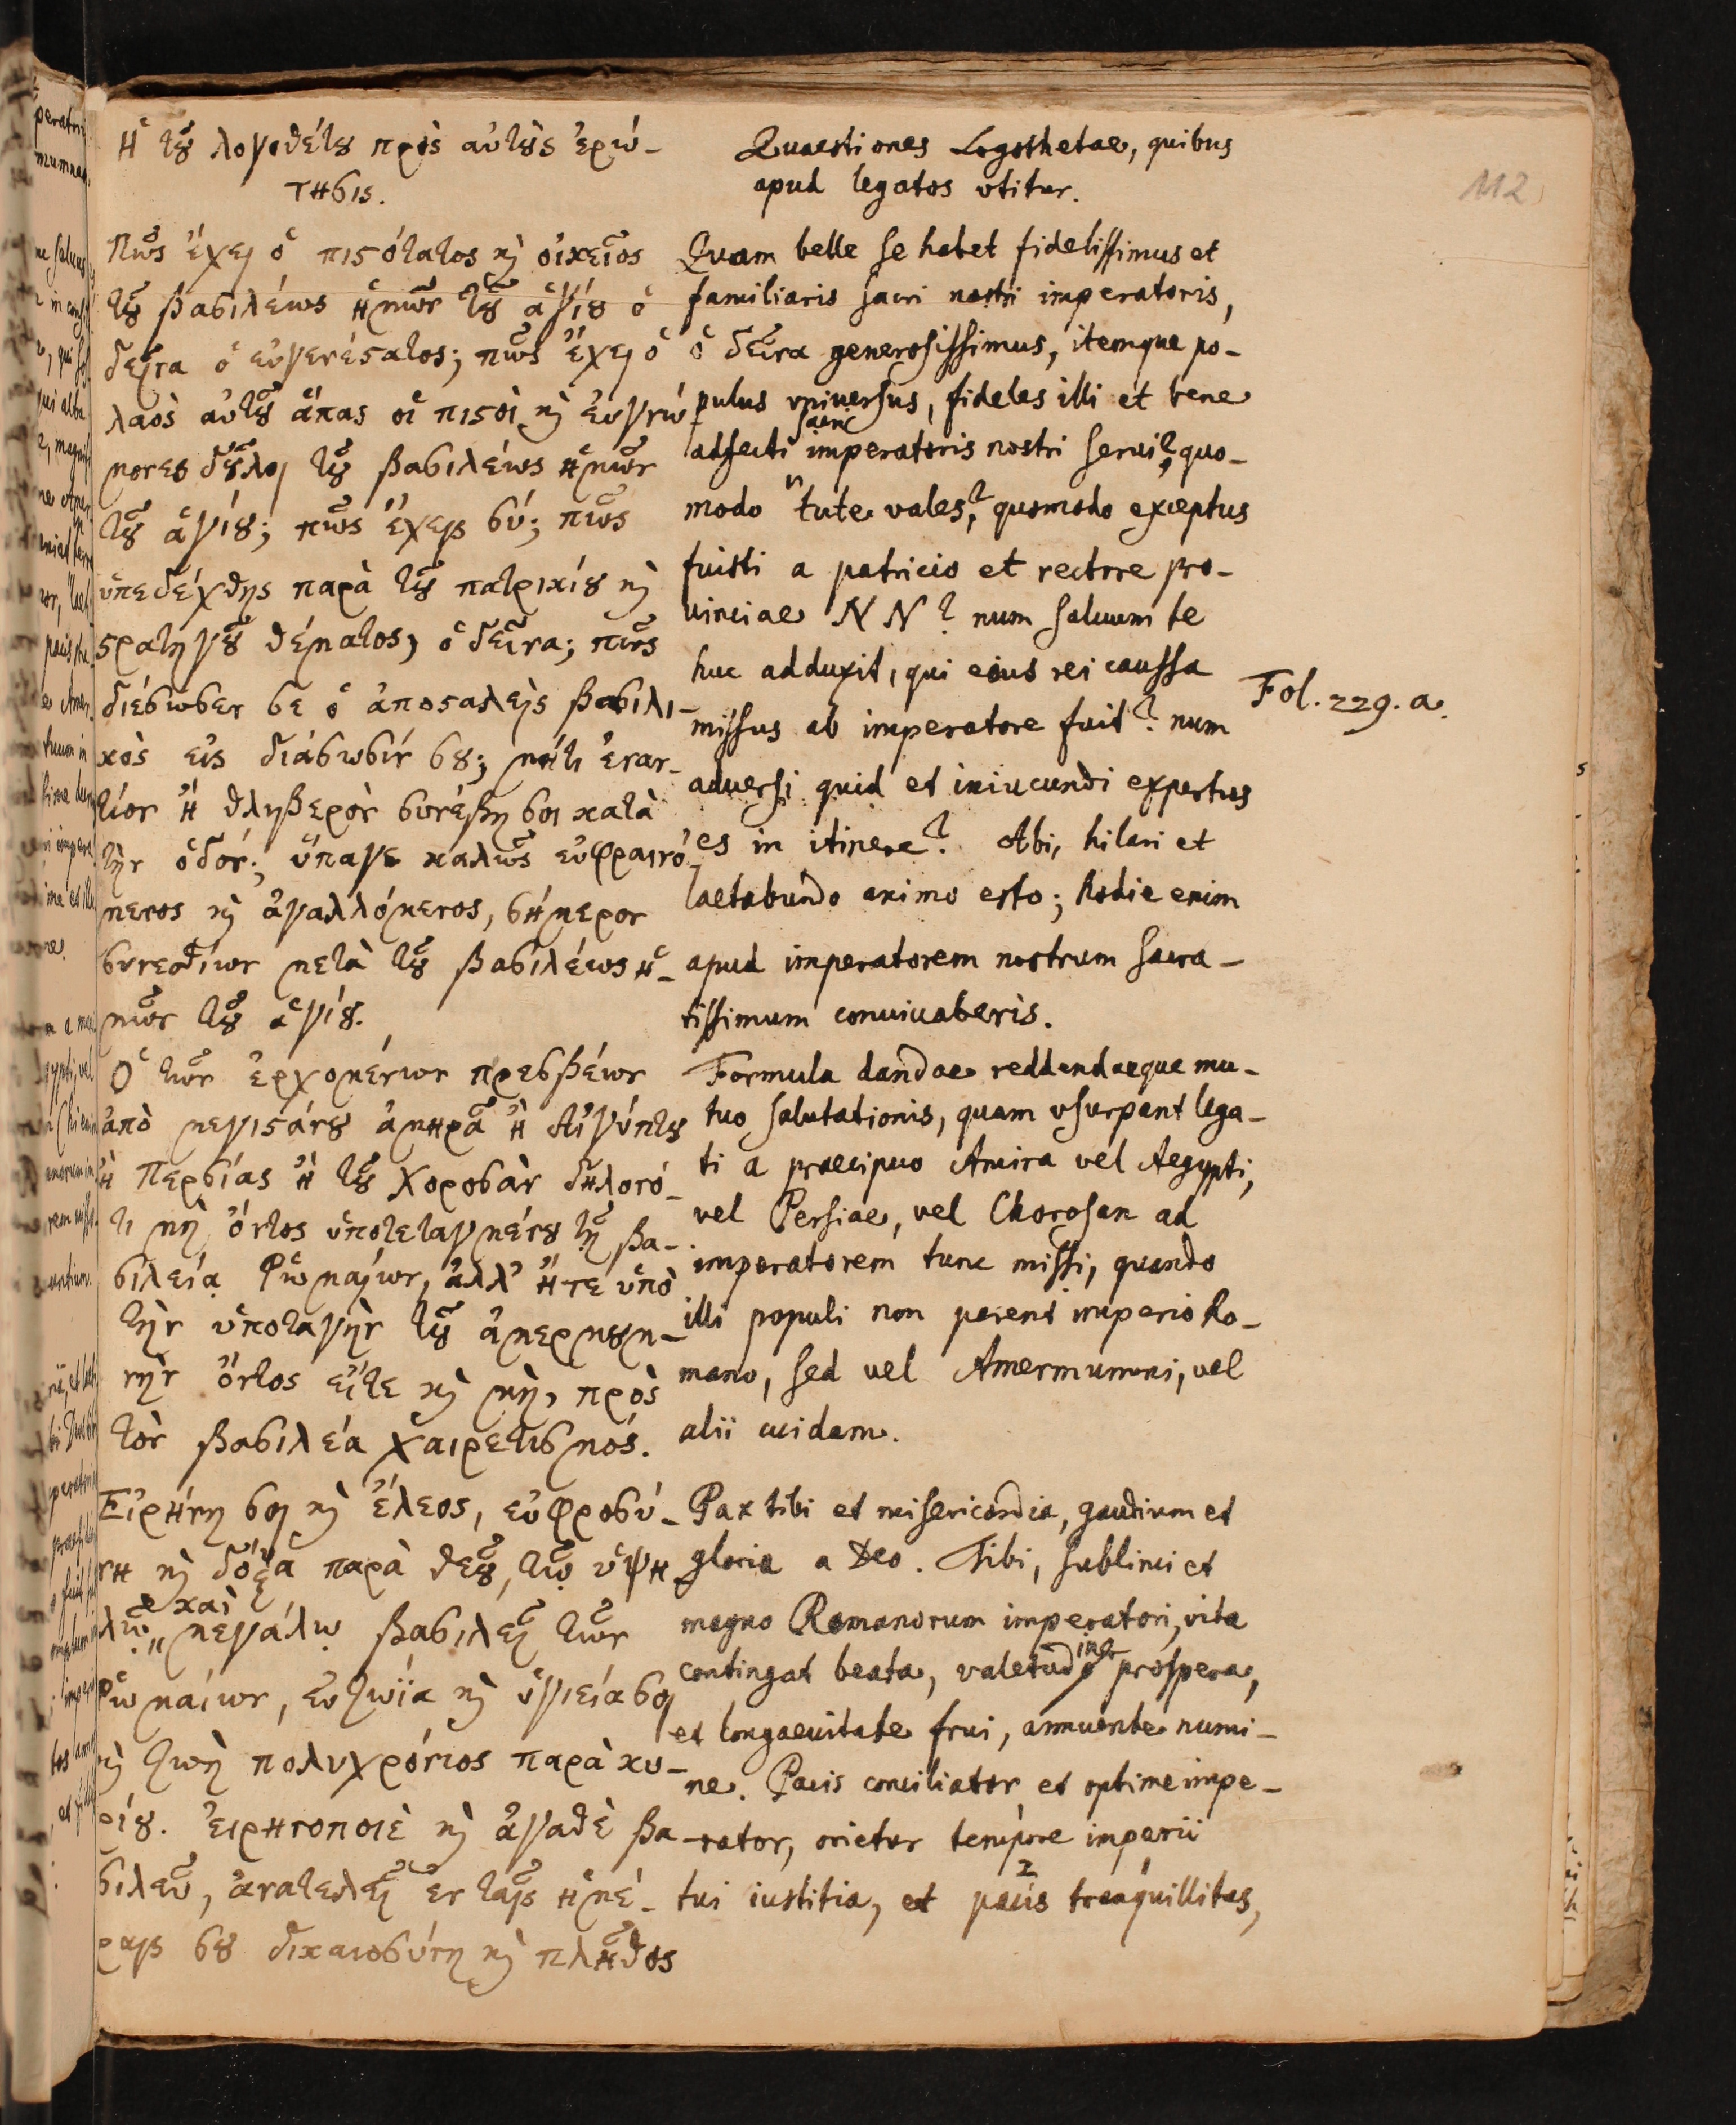 Ἡ τοῦ λογοθέτου πρὸς αὐτοὺς ἐρώ-
τησις.
Πῶς ἔχει ὁ πιστότατος καὶ οἰκεῖος
τοῦ βασιλέως ἡμῶν τοῦ ἁγίου ὁ
δεῖνα ὁ εὐγενέστατος; πῶς ἔχει ὁ
λαὸς αὐτοῦ ἅπας οἱ πιστοὶ καὶ εὐγνώ-
μονες δοῦλοι τοῦ βασιλέως ἡμῶν
τοῦ ἁγίου; πῶς ἔχεις σύ; πῶς
ὑπεδέχθης παρὰ τοῦ πατρικίου καὶ
στρατηγοῦ θέματος, ὁ δεῖνα; πῶς
διέσωσεν σε ὁ ἀποσταλεὶς βασιλι-
κὸς εἰς διάσωσίν σου; μήτι ἐναν-
τίον ἢ θληβερὸν συνέβη σοι κατὰ
τὴν ὁδόν; ὕπαγε καλῶς εὐφραινό-
μενος καὶ ἀγαλλόμενος, σήμερον
συνεσθίων μετὰ τοῦ βασιλέως ἡ-
μῶν τοῦ ἁγίου.
Ὁ τῶν ἐρχομένων πρεσβέων
ἀπὸ μεγιστάνου ἀμηρᾶ ἢ Αἰγύπτου
ἢ Περσίας ἢ τοῦ Χοροσὰν δηλονό-
τι μὴ ὄντος ὑποτεταγμένου τῇ βα-
σιλείᾳ Ῥωμαίων, ἀλλ' ἤτε ὑπὸ
τὴν ὑποταγὴν τοῦ ἀμερμουμ-
νὴν ὄντος εἴτε καὶ μὴ, πρὸς
τὸν βασιλέα χαιρετισμός.
Εἰρήνη σοι καὶ ἔλεος, εὐφροσύ-
νη καὶ δόξα παρὰ θεοῦ, τῷ ὑψη-
καὶ
λῷ μεγάλῳ βασιλεῖ τῶν
Ῥωμαίων, εὐζωΐα καὶ ὑγιεία σοι
καὶ ζωὴ πολυχρόνιος παρὰ κυ-
ρίου. εἰρηνοποιὲ καὶ ἀγαθὲ βα-
σιλεῦ, ἀνατελεῖ ἐν ταῖς ἡμέ-
ραις σου δικαιοσύνη καὶ πλῆθος
Quaestiones Logothetae, quibus
apud legatos vtitur.
Quam belle se habet fidelissimus et
familiaris sacri nostri imperatoris,
ὁ δεῖνα generosissimus, itemque po-
pulus vniuersus, fideles illi et bene
sacri
adfecti imperatoris nostri serui? quo-
modo tute vales? quomodo exceptus
fuisti a patricio et rectore pro-
uinciae N N? num saluum te
huc adduxit, qui eius rei caussa
missus ab imperatore fuit? num
aduersi quid et iniucundi expertus
es in itinere? Abi, hilari et
laetabundo animo esto; hodie enim
apud imperatorem nostrum sacra-
tissimum conuiuaberis.
Formula dandae reddendaeque mu-
tuo salutationis, quam vsurpant lega-
ti a praecipuo Amira vel Aegypti,
vel Persiae, vel Chorosan ad
imperatorem tunc missi, quando
illi populi non parent imperio Ro-
mano, sed vel Amermumni, vel
alii cuidam.
Pax tibi et misericordia, gaudium et
gloria a Deo. Tibi, sublimi et
magno Romanorum imperatori, vita
contingat beata, valetudine prospera,
et longaeuitate frui, annuente numi-
ne. Pacis conciliator et optime impe-
rator, orietur tempore imperii
tui iustitia, et pacis tranquillitas,
Fol. 229. a.
112